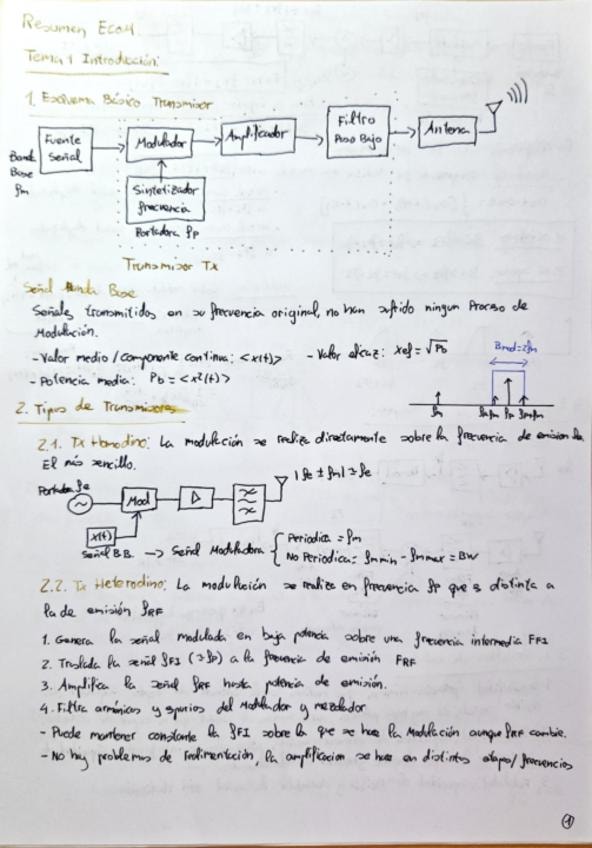 Resumen Eco4
Tema 1 Introducción:
1. Esquema Básico Transmisor
Banda Base fm
Fuente Señal
Modulador
Amplificador
Filtro Paso Bajo
Antena
Sintetizador frecuencia
Portadora fp
Transmisor Tx
Señal Banda Base
Señales transmitidos en su frecuencia original, no han sufrido ningun Proceso de
Modulación.
- Valor medio / Componente continua: <x(t)> - Valor eficaz: xef = √Pb
- Potencia media: Pb = <x²(t)>
Bmod=2fm
fm fp-fm fp fp+fm
2. Tipos de Transmisores
2.1. Tx Homodino: La modulación se realiza directamente sobre la frecuencia de emision fe.
El más sencillo.
Portadora fe
Mod
|fe ± fm| ≃ fe
x(t)
Señal B.B. → Señal Moduladora { Periodica = fm
No Periodica = fmmin - fmmax = BW
2.2. Tx Heterodino: La modulación se realiza en frecuencia fp que es distinta a
la de emisión fRF
1. Genera la señal modulada en baja potencia sobre una frecuencia intermedia FFI
2. Traslada la señal fFI (≃fp) a la frecuencia de emisión FRF
3. Amplifica la señal fRF hasta potencia de emisión.
4. Filtra armónicos y spurios del Modulador y mezclador
- Puede mantener constante la fFI sobre la que se hace la Modulación aunque fRF cambie.
- No hay problemas de realimentación, la amplificacion se hace en distintas etapas/frecuencias
1